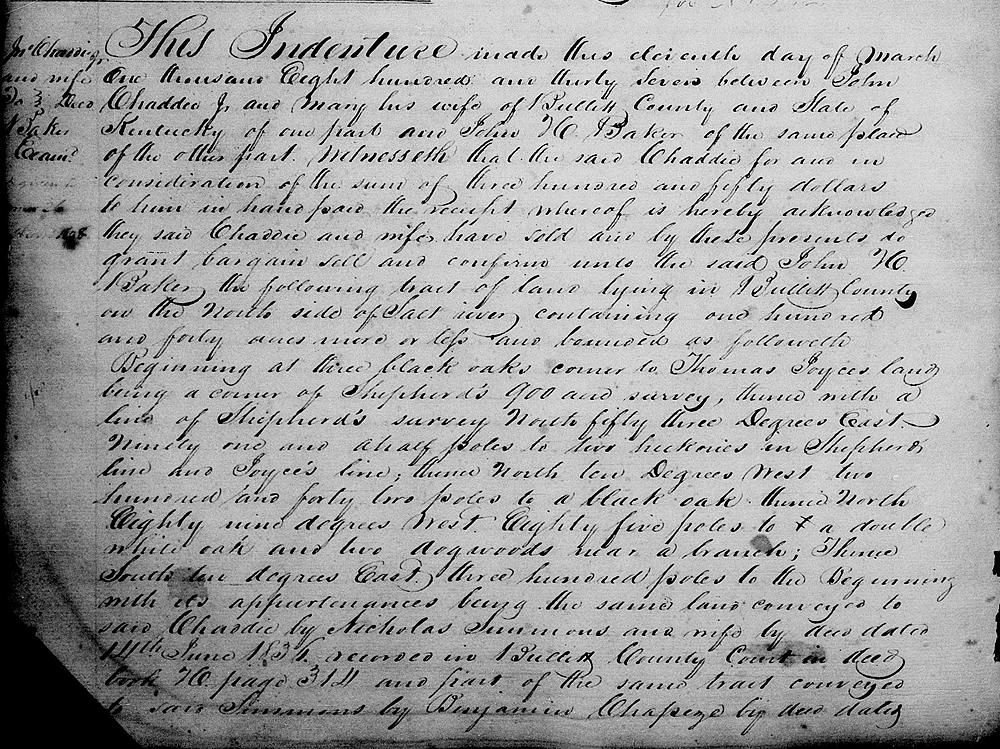 This Indenture made this eleventh day of March
One thousand Eight hundred and thirty seven between John
Chaddic Jr and Mary his wife of Bullitt County and State of
Kentucky of one part and John H. Baker of the same place
of the other part. Witnesseth that the said Chaddic for and in
consideration of the sum of three hundred and fifty dollars
to him in hand paid the receipt whereof is hereby acknowledged
they said Chaddic and wife have sold and by these presents do
grant bargain sell and confirm unto the said John H.
Baker the following tract of land lying in Bullitt County
on the North side of Salt river, containing one hundred
and forty acres more or less and bounded as followeth
Beginning at three black oaks corner to Thomas Joyces land
being a corner of Shepherd's 900 acre survey, thence with a
line of Shepherd's survey North fifty three Degrees East
Ninety one and a half poles to two hickories in Shepherds
line and Joyce's line; thence North ten Degrees West two
hundred and forty two poles to a black oak thence North
Eighty nine degrees West Eighty five poles to a double
white oak and two dogwoods near a branch; Thence
South ten degrees East, three hundred poles to the Beginning
with its appurtenances being the same land conveyed to
said Chaddic by Nicholas Simmons and wife by deed dated
14th June 1834 recorded in Bullitt County Court in deed
book H. page 314 and part of the same tract conveyed
to said Simmons by Benjamin Chapeze by deed dated
Jno Chaddic Jr
and wife
To Deed
Baker
Examd